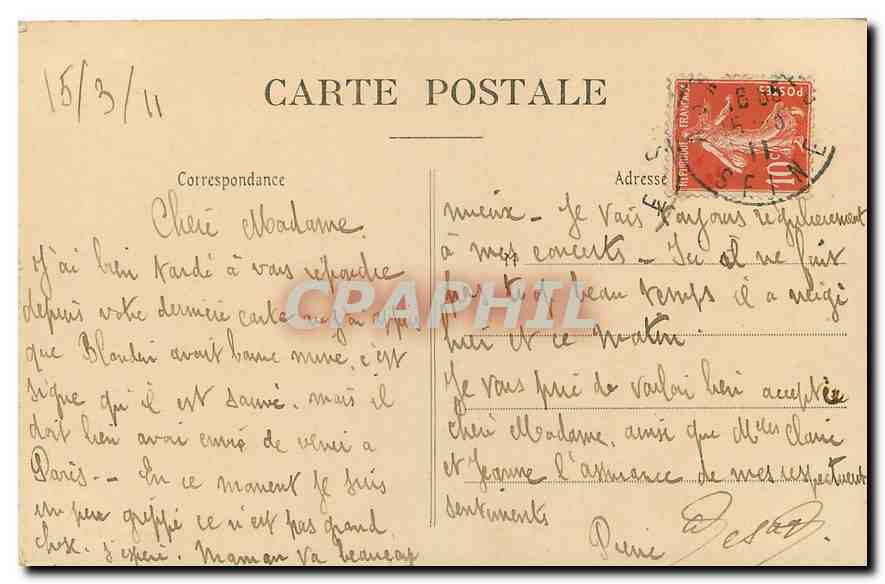 15/3/11
CARTE POSTALE
Correspondance
Adresse
POSTES
REPUBLIQUE FRANÇAISE
10c
11
SEINE
CPAPHIL
Cheré Madame.
J'ai bien tardé à vous répondre
depuis votre dernière carte
que Blandin avait bonne mine, c'est
signe qu'il est sauvé. mais il
doit bien avoi envie de venir a
Paris -- En ce moment je suis
un peu grippé ce n'est pas grand
chose. j'espère. Maman va beaucoup
mieux - Je vais toujours régulièrement
à mes concerts - Ici il ne fait
pas trop beau temps il a neigé
hier et ce matin.
Je vous prie de vouloir bien accepter
cheré Madame, ainsi que Mlles Claire
et Jeanne l'assurance de mes respectueux
sentiments
Pierre